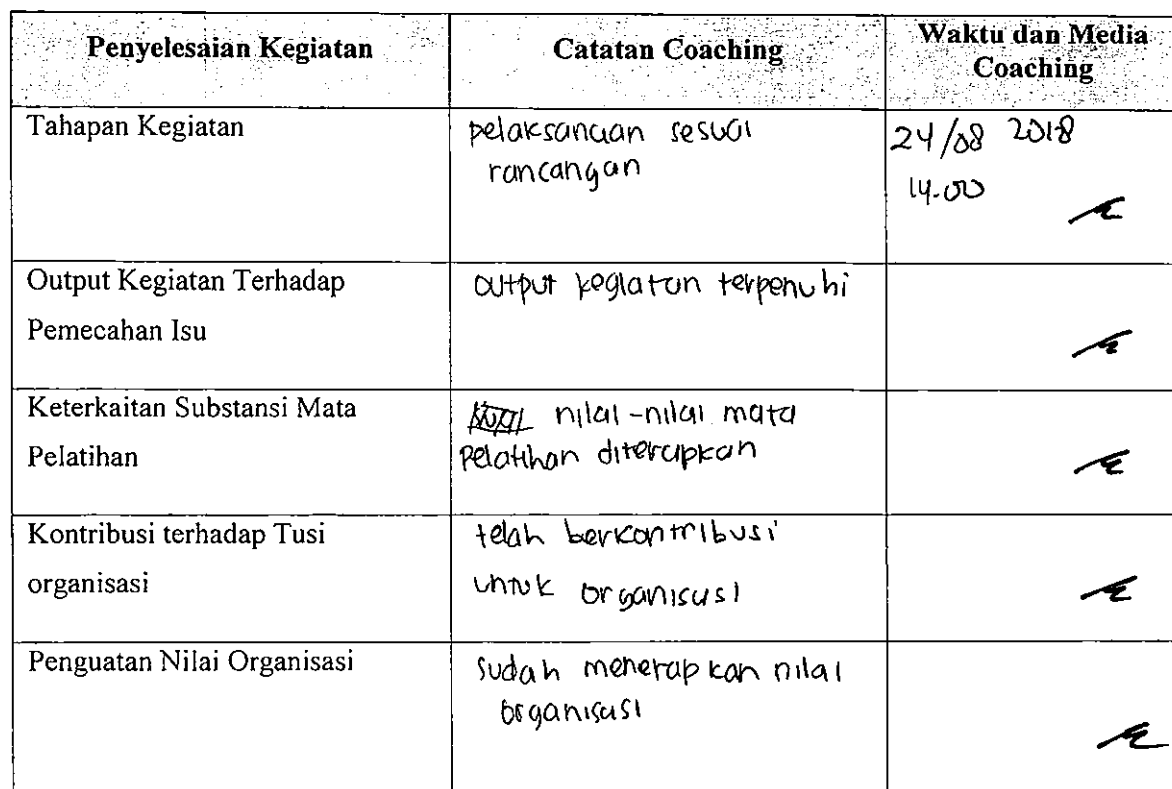 Penyelesaian Kegiatan
Catatan Coaching
Waktu dan Media
Coaching
Tahapan Kegiatan
pelaksanaan sesuai
rancangan
24/08 2018
14.00
Output Kegiatan Terhadap
Pemecahan Isu
output kegiatan terpenuhi
Keterkaitan Substansi Mata
Pelatihan
nilai-nilai mata
pelatihan diterapkan
Kontribusi terhadap Tusi
organisasi
telah berkontribusi
untuk organisasi
Penguatan Nilai Organisasi
sudah menerapkan nilai
organisasi